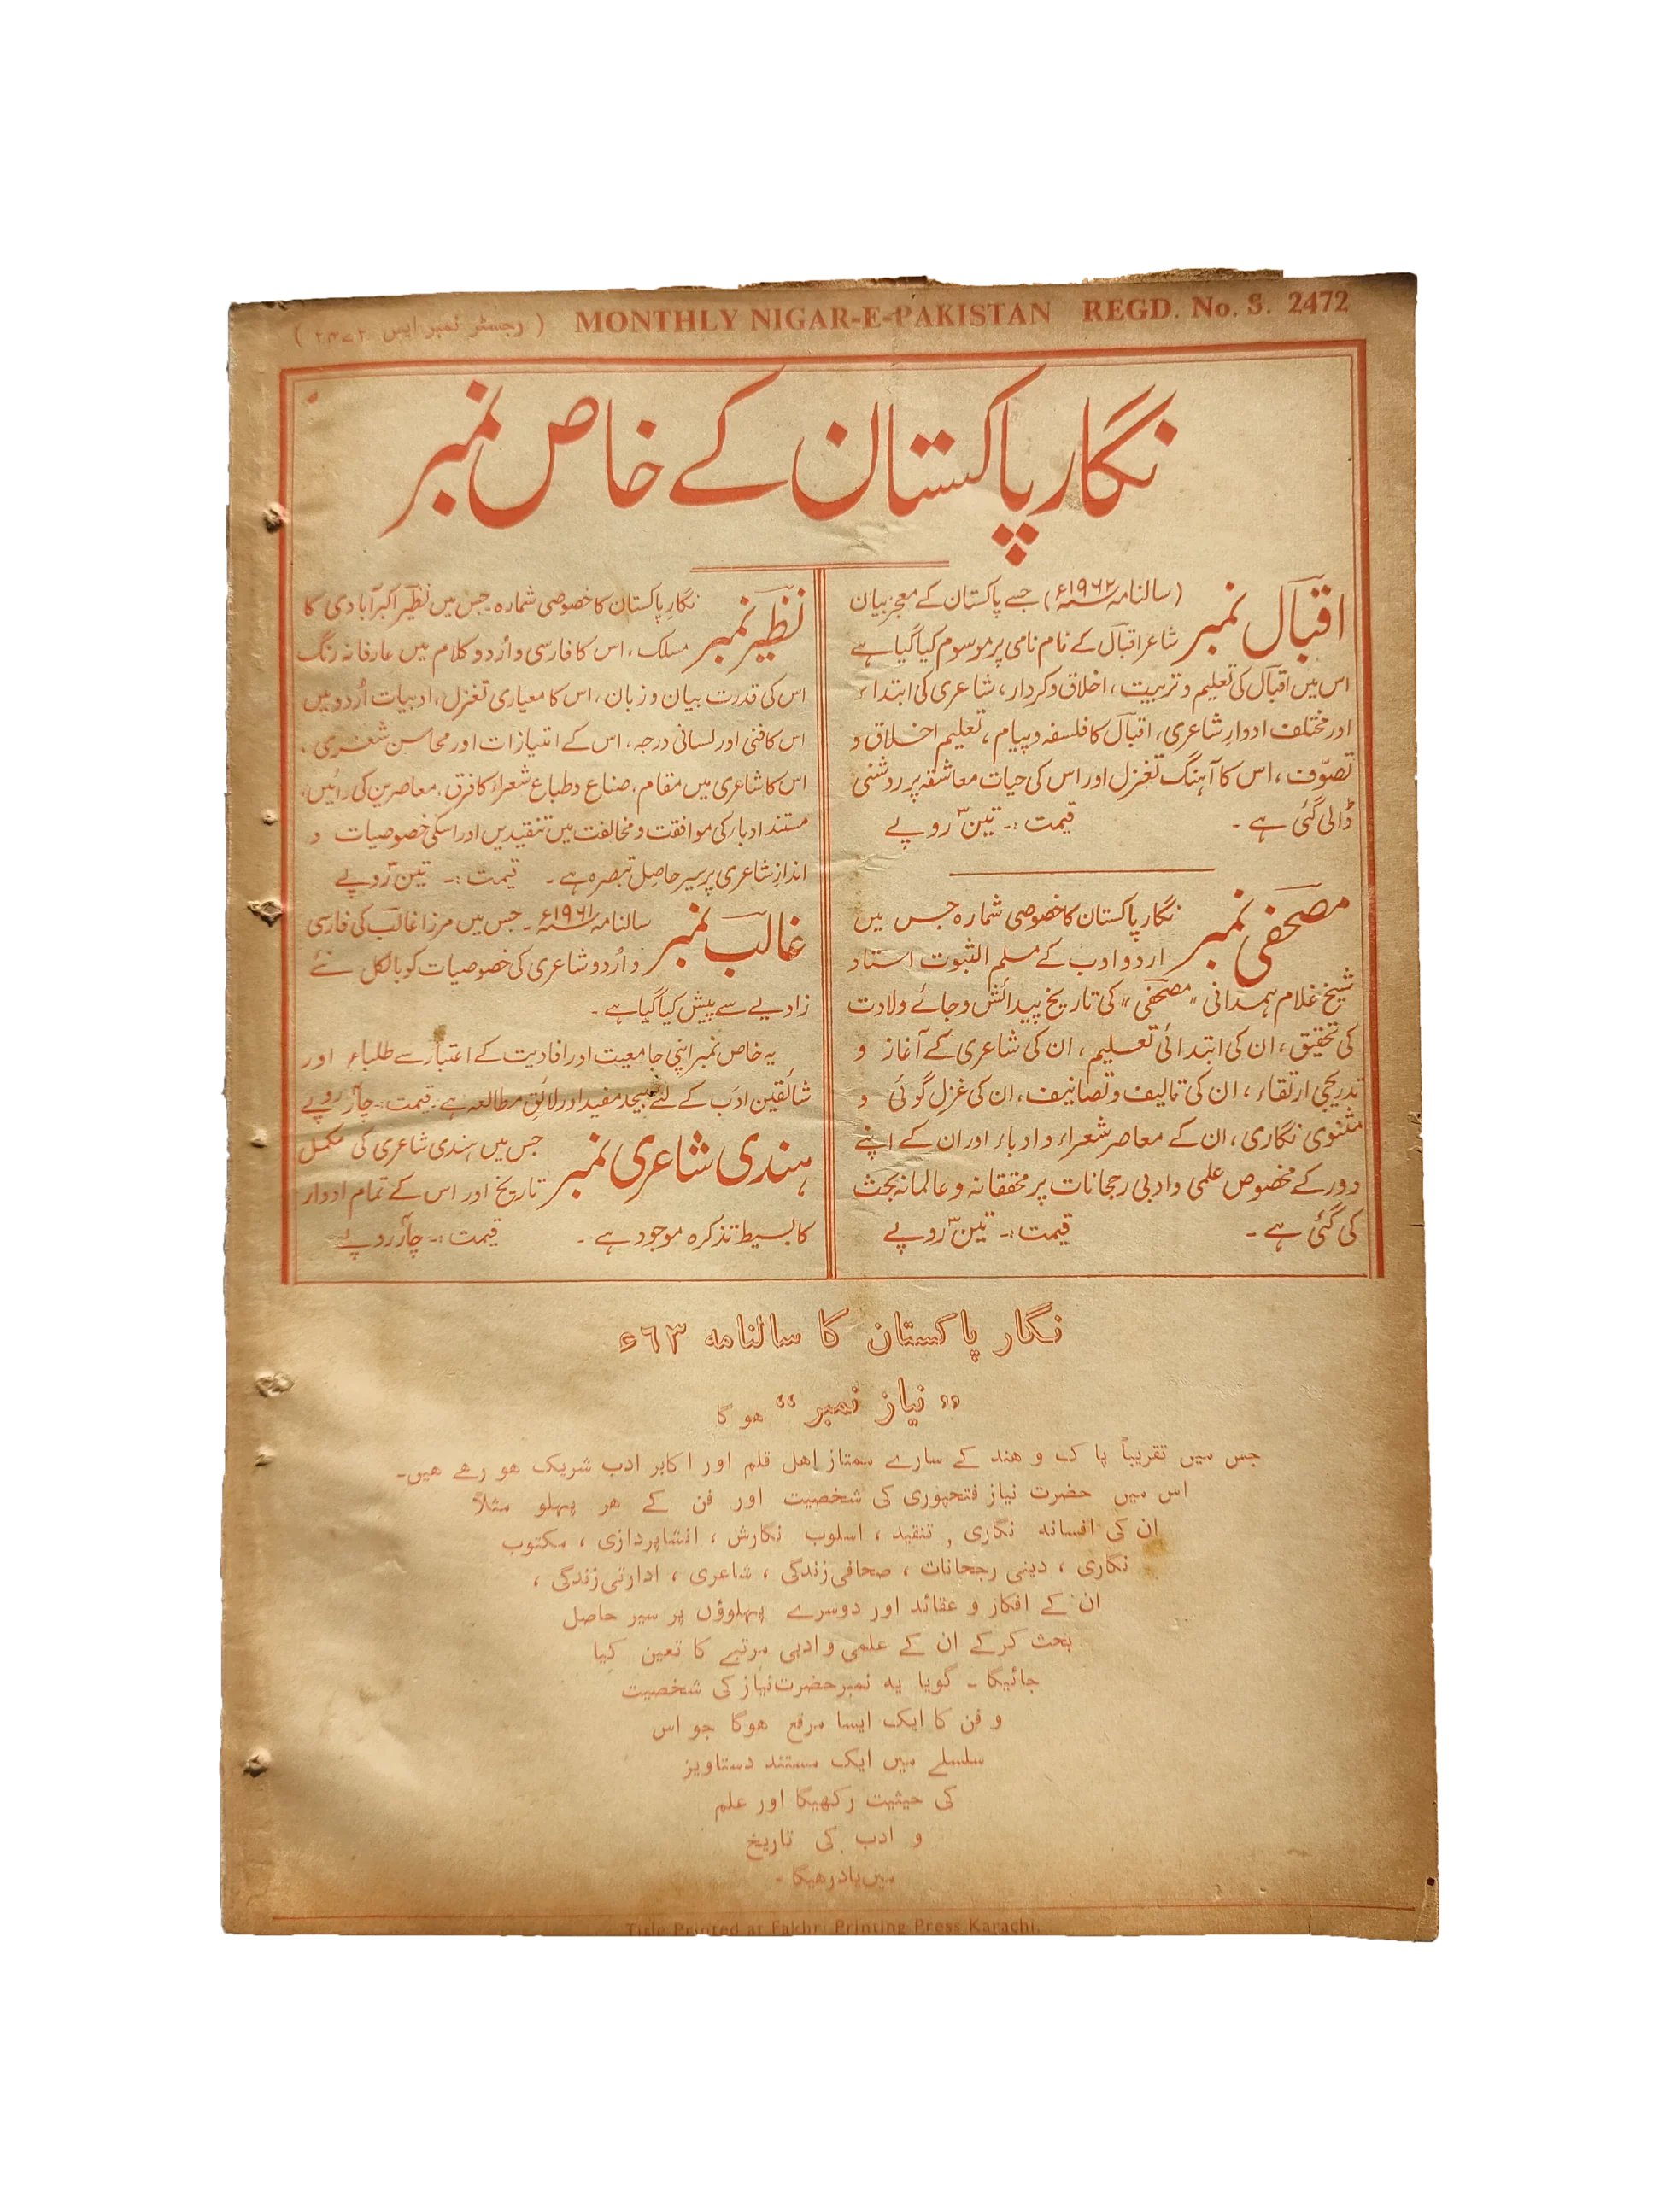 MONTHLY NIGAR-E-PAKISTAN REGD. No. S. 2472 ( رجسٹر نمبر ایس ۲۴۷۲ )
نگار پاکستان کے خاص نمبر
اقبال نمبر
(سالنامہ ۱۹۶۲ء) جسے پاکستان کے معجز بیان
شاعر اقبال کے نام نامی پر موسوم کیا گیا ہے
اس میں اقبال کی تعلیم و تربیت، اخلاق و کردار، شاعری کی ابتداء
اور مختلف ادوارِ شاعری، اقبال کا فلسفہ و پیام، تعلیم اخلاق و
تصوّف، اس کا آہنگ تغزل اور اس کی حیات معاشقہ پر روشنی
ڈالی گئی ہے ۔ قیمت :۔ تین روپے
مصحفی نمبر
نگار پاکستان کا خصوصی شمارہ جس میں
اردو ادب کے مسلم الثبوت استاد
شیخ غلام ہمدانی "مصحفی" کی تاریخ پیدائش و جائے ولادت
کی تحقیق، ان کی ابتدائی تعلیم، ان کی شاعری کے آغاز و
تدریجی ارتقاء، ان کی تالیف و تصانیف، ان کی غزل گوئی و
مثنوی نگاری، ان کے معاصر شعراء و ادباء اور ان کے اپنے
دور کے مخصوص علمی و ادبی رجحانات پر محققانہ و عالمانہ بحث
کی گئی ہے ۔ قیمت :۔ تین روپے
نظیر نمبر
نگار پاکستان کا خصوصی شمارہ ۔ جس میں نظیر اکبر آبادی کا
مسلک، اس کا فارسی و اُردو کلام میں عارفانہ رنگ
اس کی قدرت بیان و زبان، اس کا معیاری تغزل، ادبیات اُردو میں
اس کا فنی اور لسانی درجہ، اس کے امتیازات اور محاسن شعری،
اس کا شاعری میں مقام، صناع و طباع شعراء کا فرق، معاصرین کی رائیں،
مستند ادباء کی موافقت و مخالفت میں تنقیدیں اور اسکی خصوصیات و
اندازِ شاعری پر سیر حاصل تبصرہ ہے ۔ قیمت :۔ تین روپے
غالب نمبر
سالنامہ ۱۹۶۱ء ۔ جس میں مرزا غالب کی فارسی
و اُردو شاعری کی خصوصیات کو بالکل نئے
زاویے سے پیش کیا گیا ہے ۔
یہ خاص نمبر اپنی جامعیت اور افادیت کے اعتبار سے طلباء اور
شائقین ادب کے لئے بیحد مفید اور لائق مطالعہ ہے ۔ قیمت :۔ چار روپے
ہندی شاعری نمبر
جس میں ہندی شاعری کی مکمل
تاریخ اور اس کے تمام ادوار
کا بسیط تذکرہ موجود ہے ۔ قیمت :۔ چار روپے
نگار پاکستان کا سالنامہ ۶۳ء
"نیاز نمبر" ھو گا
جس میں تقریباً پاک و ھند کے سارے ممتاز اھل قلم اور اکابر ادب شریک ھو رھے ھیں۔
اس میں حضرت نیاز فتحپوری کی شخصیت اور فن کے ھر پہلو مثلاً
ان کی افسانہ نگاری , تنقید ، اسلوب نگارش ، انشاپردازی ، مکتوب
نگاری ، دینی رجحانات ، صحافی زندگی ، شاعری ، ادارتی زندگی ،
ان کے افکار و عقائد اور دوسرے پہلوؤں پر سیر حاصل
بحث کرکے ان کے علمی و ادبی مرتبے کا تعین کیا
جائیگا ۔ گویا یہ نمبر حضرت نیاز کی شخصیت
و فن کا ایک ایسا مرقع ھوگا جو اس
سلسلے میں ایک مستند دستاویز
کی حیثیت رکھیگا اور علم
و ادب کی تاریخ
میں یادرھیگا ۔
Title Printed at Fakhri Printing Press Karachi.